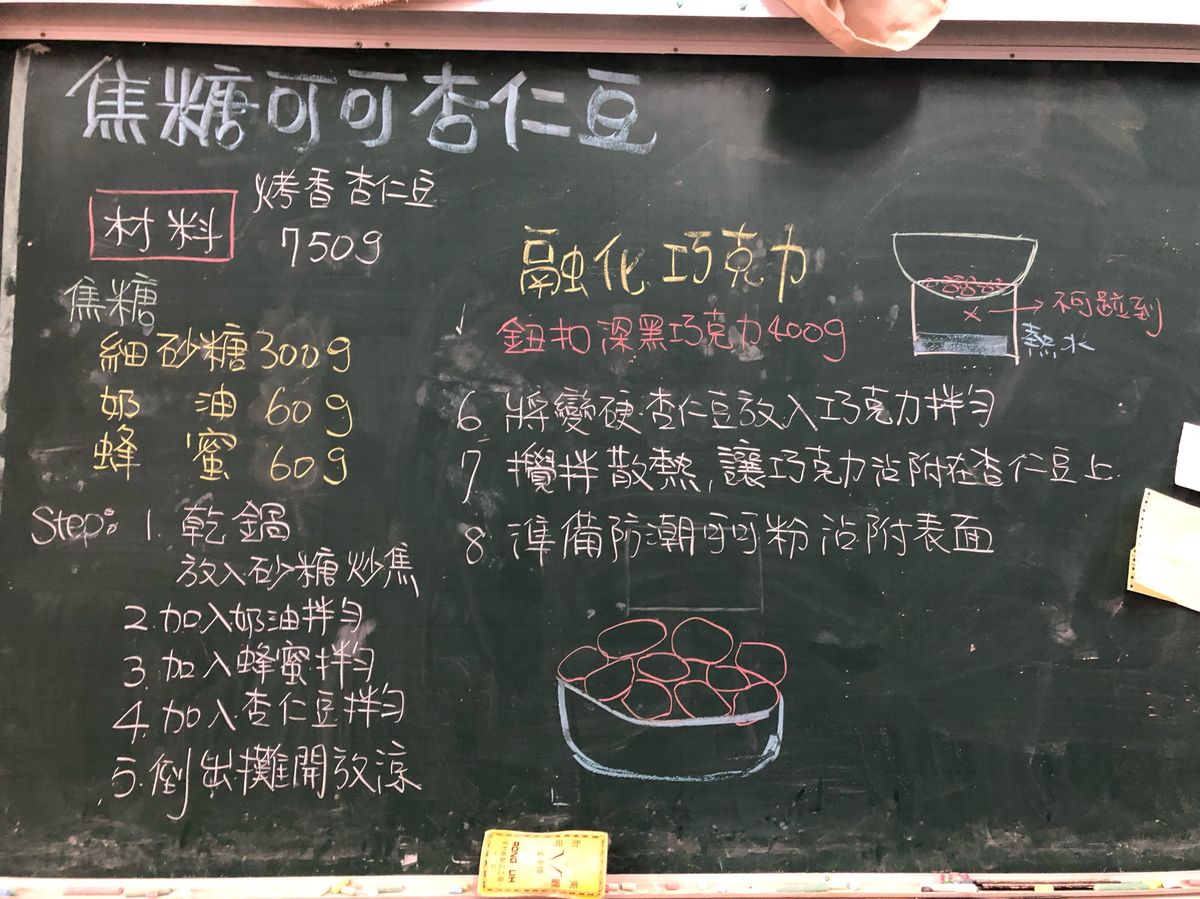 焦糖可可杏仁豆
材料
烤香杏仁豆
750g
焦糖
細砂糖 300g
奶油 60g
蜂蜜 60g
Step: 1. 乾鍋
放入砂糖炒焦
2. 加入奶油拌勻
3. 加入蜂蜜拌勻
4. 加入杏仁豆拌勻
5. 倒出攤開放涼
融化巧克力
鈕扣深黑巧克力400g
不可碰到
熱水
6 將變硬杏仁豆放入巧克力拌勻
7 攪拌散熱,讓巧克力沾附在杏仁豆上
8 準備防潮可可粉沾附表面
RONG LI